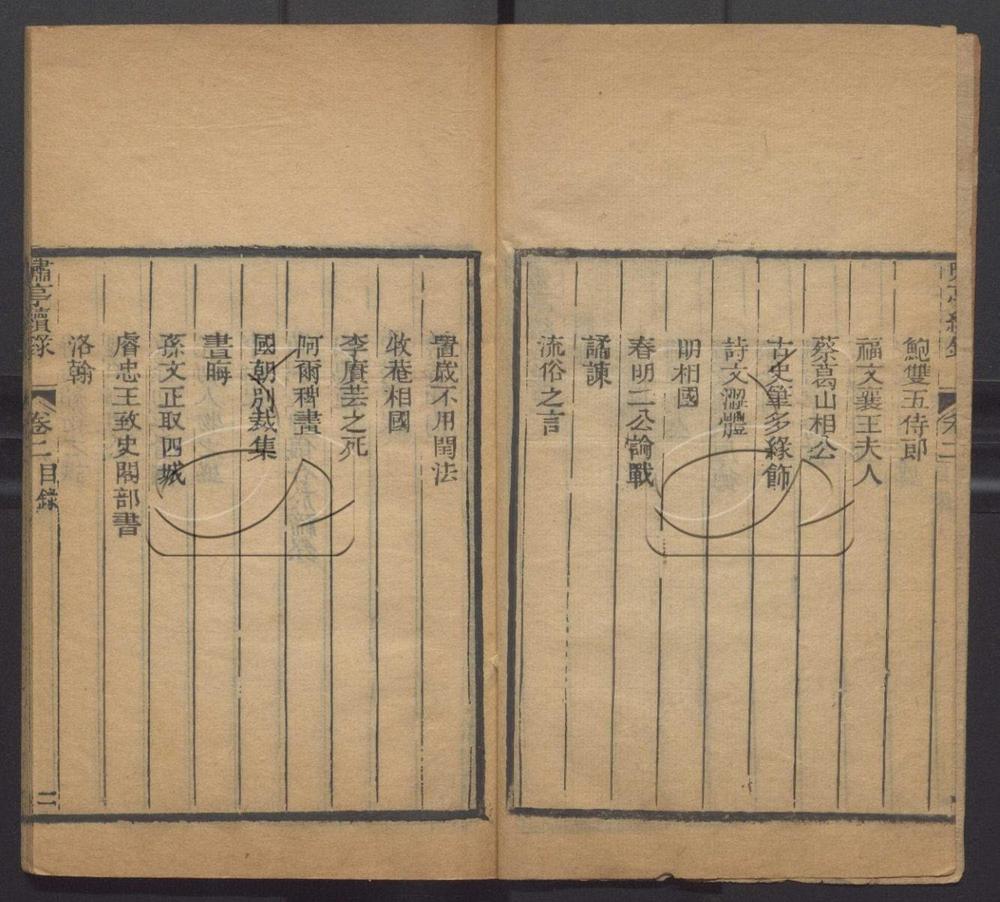 鮑雙五侍郎
福文襄王夫人
蔡葛山相公
古史筆多緣飾
詩文澀體
明相國
春明二公論戰
譎諫
流俗之言
置歲不用閏法
牧菴相國
李賡芸之死
阿爾稗畫
國朝別裁集
晝晦
孫文正取四城
睿忠王致史閣部書
洛翰
嘯亭續錄
卷二目錄
二